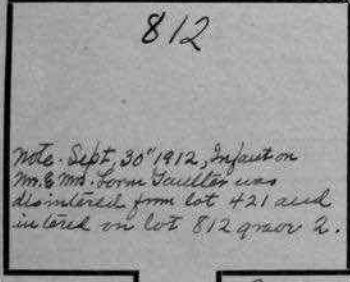 812
Note. Sept, 30" 1912, Infant on
Mr. & Mrs. Lorn Faulter was
disintered from lot 421 and
intered on lot 812 grave 2.